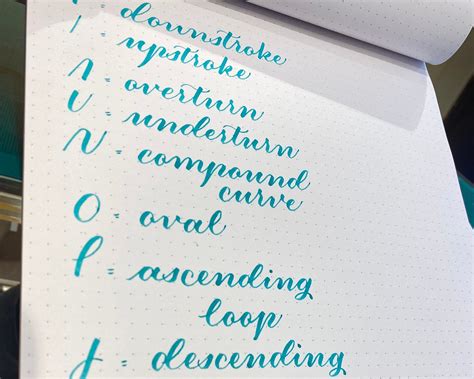 = downstroke
= upstroke
= overturn
= underturn
= compound
curve
O = oval
= ascending
loop
= descending